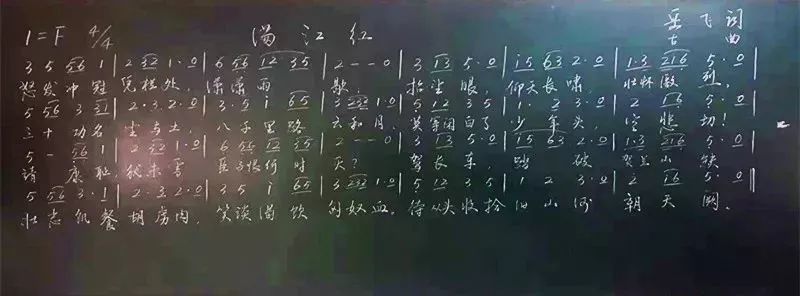 1=F 4/4 满江红 岳飞词
古曲
3 5 56 1 | 2 32 1·0 | 6 56 12 35 | 2 - - 0 | 3 13 5·0 | i5 63 2·0 | 1·3 216 5·0 |
怒发冲冠 凭栏处, 潇潇雨 歇, 抬望眼, 仰天长啸, 壮怀激烈,
5 56 3 21 | 2·3 2·0 | 3·5 i 65 | 3 232 1·0 | 5 12 3 5 | 1· 2 3·0 | 2 16 5·0 |
三十功名 尘与土, 八千里路 云和月, 莫等闲白了 少年头, 空悲切!
5 - 56 1 | 2 32 1·0 | 6 56 12 35 | 2 - - 0 | 3 13 5·0 | 15 63 2·0 | 1·3 216 5·0 |
靖康耻, 犹未雪 臣子恨何时 灭? 驾长车, 踏破 贺兰山缺
5 56 3·1 | 2·3 2·0 | 3 5 i 65 | 3 232 1·0 | 5 12 3 5 | 1· 2 3·0 | 2 16 5·0 |
壮志饥餐 胡虏肉, 笑谈渴饮 匈奴血, 待从头收拾 旧山河 朝天阙.